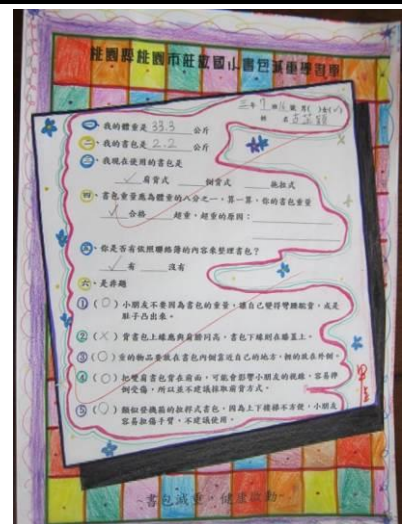 桃園縣桃園市莊敬國小書包減重學習單
三年7班
姓名
一、我的體重是 33.3 公斤
二、我的書包是 2.2 公斤
三、我現在使用的書包是
✓肩背式 側背式 拖拉式
四、書包重量應為體重的八分之一，算一算，你的書包重量
✓合格 超重，超重的原因：
五、你是否有依照聯絡簿的內容來整理書包？
✓有 沒有
六、是非題
①(○)小朋友不要因為書包的重量，讓自己變得彎腰駝背，或是
肚子凸出來。
②(×)背書包上緣應與肩膀同高，書包下緣則在膝蓋上。
③(○)重的物品要放在書包內側靠近自己的地方，輕的放在外側。
④(○)把雙肩書包背在前面，可能會影響小朋友的視線，容易摔
倒受傷，所以並不建議採取前背方式。
⑤(○)類似登機箱的拉桿式書包，因為上下樓梯不方便，小朋友
容易扭傷手臂，不建議使用。
~書包減重，健康啟動~